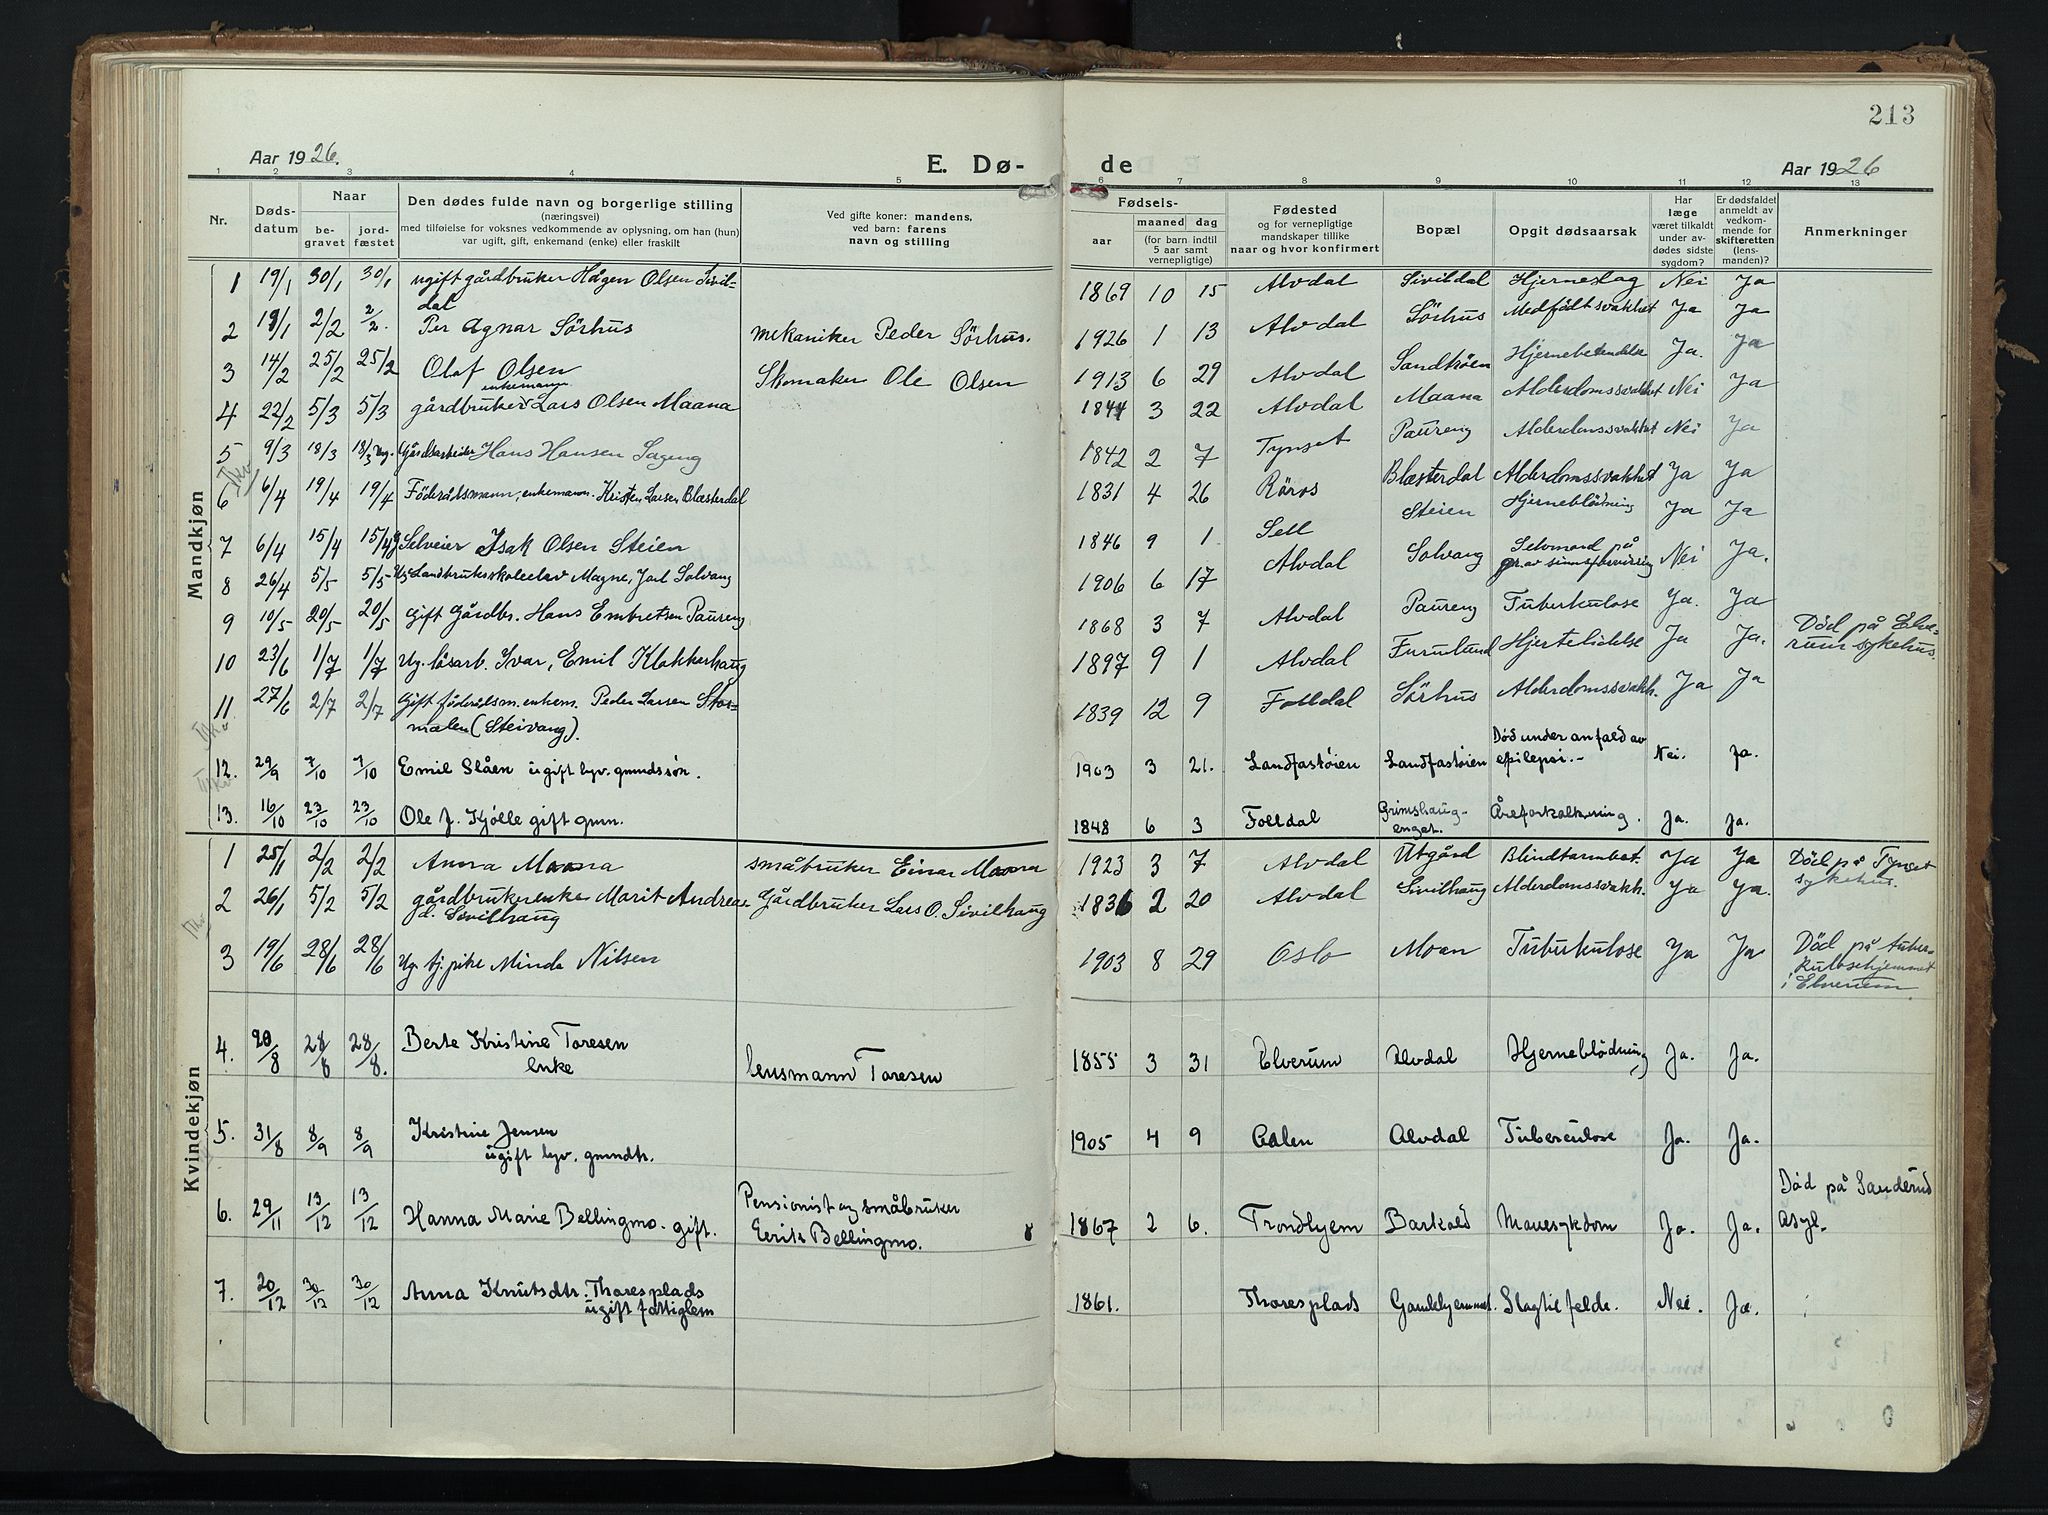 213
Aar 1926.
E. Dø-
de
Aar 1926
1 2 3 4 5 6 7 8 9 10 11 12 13
Nr. Døds-datum Naar be-gravet jord-fæstet Den dødes fulde navn og borgerlige stilling (næringsvei) med tilføielse for voksnes vedkommende av oplysning, om han (hun) var ugift, gift, enkemand (enke) eller fraskilt Ved gifte koner: mandens, ved barn: farens navn og stilling Fødsels- aar maaned dag (for barn indtil 5 aar samt vernepligtige) Fødested og for vernepligtige mandskaper tillike naar og hvor konfirmert Bopæl Opgit dødsaarsak Har læge været tilkaldt under av-dødes sidste sygdom? Er dødsfaldet anmeldt av vedkom-mende for skifteretten (lens-manden)? Anmerkninger
Mandkjøn
1 19/1 30/1 30/1 ugift gårdbruker Hågen Olsen Sivil-dal 1869 10 15 Alvdal Sivildal Hjerneslag Nei Ja
2 19/1 2/2 2/2. Per Agnar Sörhus mekaniker Peder Sörhus. 1926 1 13 Alvdal Sörhus Medfödt svakhet Ja Ja
3 14/2 25/2 25/2 Olaf Olsen Skomaker Ole Olsen 1913 6 29 Alvdal Sandköen Hjernebetendelse Ja. Ja
4 22/2 5/3 5/3 gårdbruker enkemann Lars Olsen Maana 1844 3 22 Alvdal Maana Alderdomssvakhet Nei Ja
5 9/3 18/3 18/3 Ug. Gårdsarbeider Hans Hansen Sageng 1842 2 7 Tynset Paureng Alderdomssvakhet Nei Ja
6 6/4 19/4 19/4 Föderåtsmann, enkemann. Kristen Larsen Blæsterdal 1831 4 26 Röros Blæsterdal Alderdomssvakhet Ja Ja
7 6/4 15/4 15/4 g Selveier Isak Olsen Steien 1846 9 1 Sell Steien Hjerneblödning Ja Ja
8 26/4 5/5 5/5 Ug Landbruksskoleelev Magne, Jarl Solvang 1906 6 17 Alvdal Solvang Selvmord på gr. av sinnsforvirring Nei Ja.
9 10/5 20/5 20/5 Gift Gårdbr. Hans Embretsen Paureng 1868 3 7 Alvdal Paureng Tuberkulose Ja. Ja Död på Elve-rum sykehus.
10 23/6 1/7 1/7 Ug. lösarb. Ivar, Emil Klokkerhaug 1897 9 1 Alvdal Furulund Hjertelidelse Ja Ja.
11 27/6 2/7 2/7 Gift föderåtsm. enkem. Peder Larsen Stor-mælen (Steivang). 1839 12 9 Folldal Sörhus Alderdomssvakh. Ja Ja
12. 29/9 7/10 7/10 Emil Slåen ugift gbr. grundssøn. 1903 3 21. Landfastøien Landfastøien Død under anfald av epilepsi.- Nei. Ja.
13. 16/10 23/10 23/10 Ole J. Kjølle gift grun. 1848 6 3 Folldal Grimshaug-enget. Åreforkalkning. Ja. Ja.
Kvindekjøn
1 25/1 2/2 2/2 Anna Maana småbruker Einar Maana 1923 3 7 Alvdal Utgård Blindtarmbet. Ja Ja Död på Tynset sykehus.
2 26/1 5/2 5/2 gårdbrukerenke Marit Andreas d. Sivilhaug Gårdbruker Lars O. Sivilhaug 1836 2 20 Alvdal Sivilhaug Alderdomssvakh. Ja Ja.
3 19/6 28/6 28/6 Ug. tj. pike Minda Nilsen 1903 8 29 Oslo Moan Tuberkulose Ja Ja Död på tuber-kulosehjemmet i Elverum.
4. 20/8 28/8 28/8. Berte Kristine Toresen enke lensmann Toresen 1855 3 31 Elverum Alvdal Hjerneblödning Ja. Ja.
5. 31/8 8/9 8/9 Kristine Jensen ugift gbr. grunndtr. 1905 4 9 Aalen Alvdal Tuberculose Ja. Ja.
6. 29/11 13/12 13/12 Hanna Marie Bellingmo. gift. Pensionist og småbruker Eerik Bellingmo. 1867 2 6. Trondhjem Barkald Mavesykdom Ja. Ja. Død på Sanderud Asyl.
7. 20/12 30/12 30/12 Anna Knutsdtr. Thoresplads ugift fattiglem 1861. Thoresplads Gamlehjemmet. Slagtilfelde. Nei. Ja.